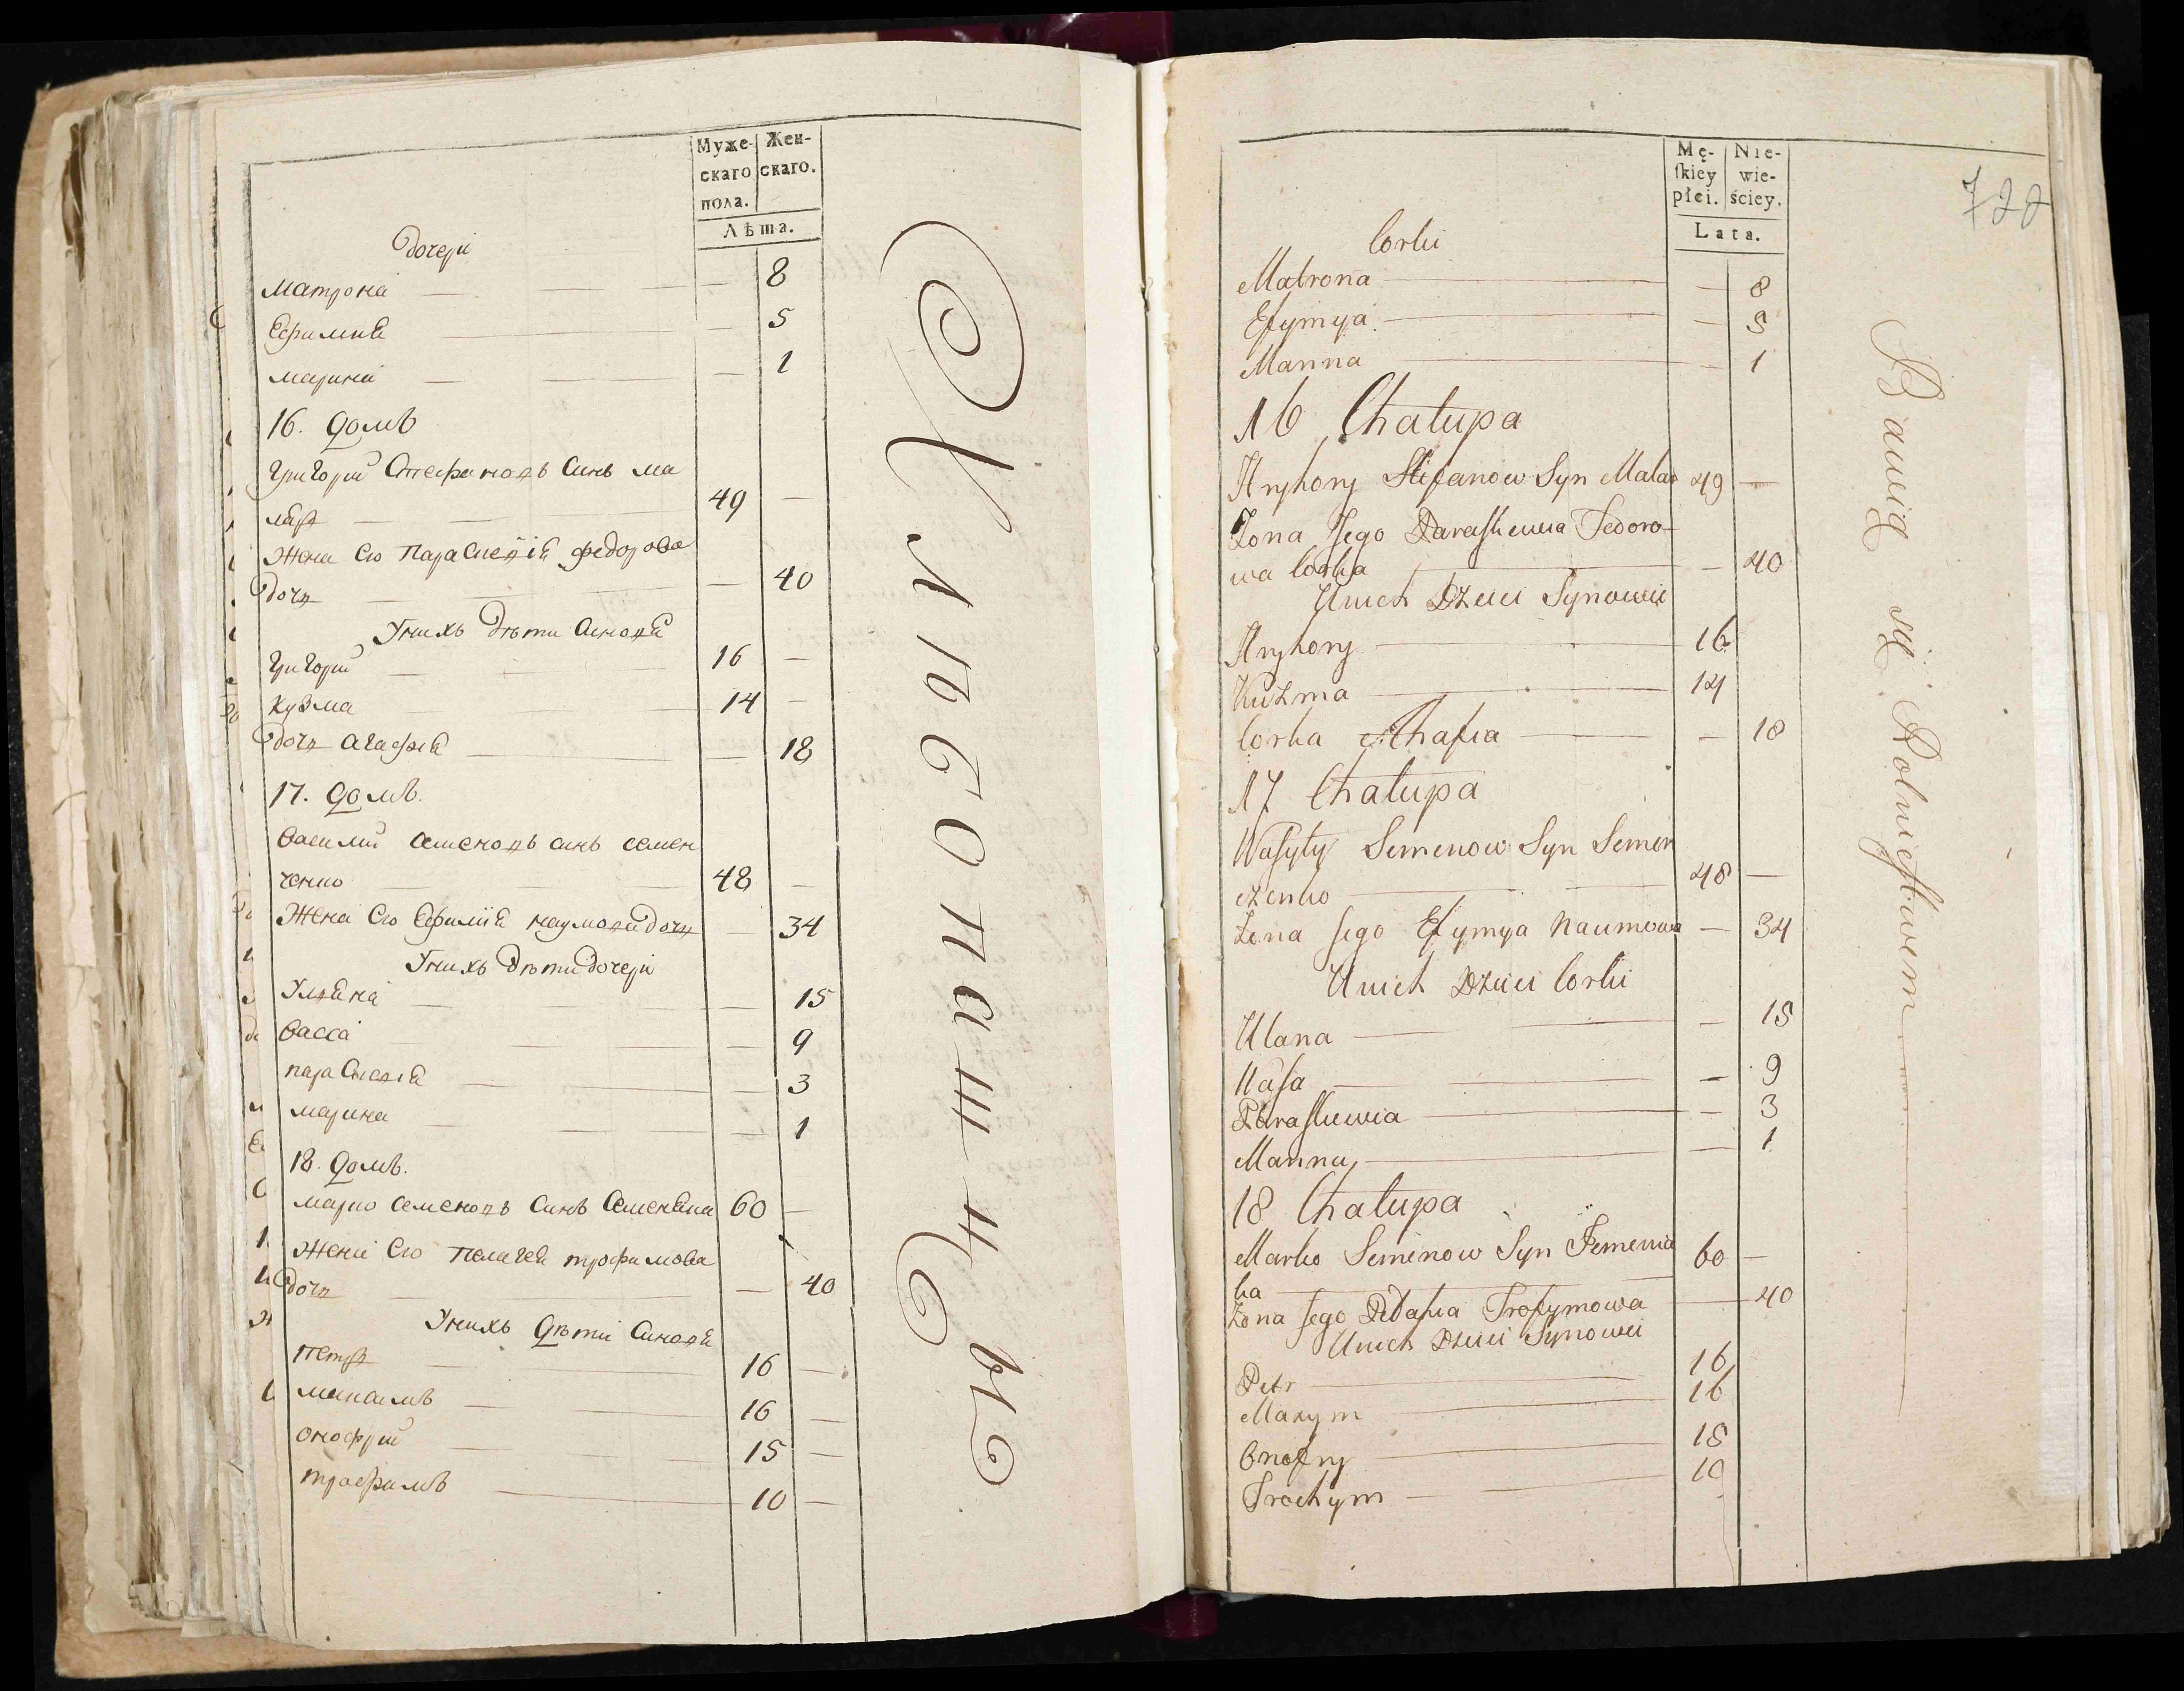 Муже-
скаго
пола.
Жен-
скаго.
Лѣта.
дочери
Матрона — 8
Ефимия 5
марина — 1
16. домъ
григорий Стефановъ Синъ ма
ляр 49 —
Жена Єго Параскевiя федорова
дочь — 40
У нихъ дѣти Синовя
григорий 16 —
кузма 14 —
дочь агафия — 18
17. домъ.
василий семеновъ синъ семен
ченко 48 —
Жена Єго Ефимiя наумова дочь — 34
У нихъ дѣти дочери
Уляна — 15
васса — 9
параскевия — 3
марина — 1
18. домъ.
марко семеновъ Синъ Семеняка 60 —
Жена Єго пелагея трофимова
дочь — 40
У нихъ дѣти Синовя
петр 16 —
максимъ 16 —
онофрий 15 —
трофимъ 10 —
Хлѣбопашцы
Mę-
ſkiey
płci.
Nie-
wie-
ściey.
Lata.
722
Corki
Matrona — 8
Efymya — 5
Marina — 1
16 Chałupa
Hryhory Stefanow Syn Malar 49 —
Zona Jego Paraskewia Fedoro-
wa Corka — 40
U nich Dzieci Synowie
Hryhory 16
Kuzma 14
Corka Ahafia — 18
17 Chałupa
Wasyly Semenow Syn Semen
czenko 48 —
Zona Jego Efymya Naumowa — 34
U nich Dzieci Corki
Ulana — 15
Wasa — 9
Paraskewia — 3
Marina — 1
18 Chałupa
Marko Semenow Syn Semenia 60 —
ka
Zona Jego Pelahia Trofymowa 40
U nich Dzieci Synowie
Petr 16
Maxym 16
Onofry 15
Trochym 10
Bawią się Rolnictwem